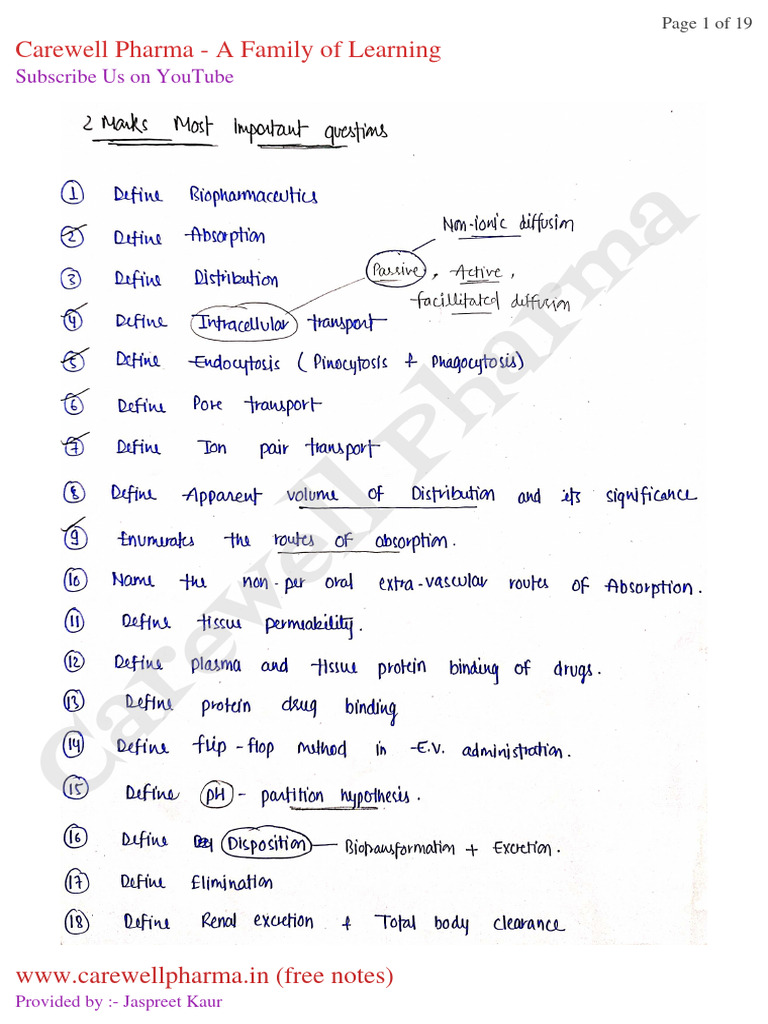 Page 1 of 19
Carewell Pharma - A Family of Learning
Subscribe Us on YouTube
2 Marks Most Important questions
① Define Biopharmaceutics
Non-ionic diffusion
② Define Absorption
③ Define Distribution
Passive, Active,
facillitated diffusion
④ Define Intracellular transport
⑤ Define Endocytosis (Pinocytosis & Phagocytosis)
⑥ Define Pore transport
⑦ Define Ion pair transport
⑧ Define Apparent volume of Distribution and its significance
⑨ Enumerates the routes of absorption.
⑩ Name the non-per oral extra-vascular routes of Absorption.
⑪ Define tissue permeability.
⑫ Define plasma and tissue protein binding of drugs.
⑬ Define protein drug binding
⑭ Define flip-flop method in E.V. administration.
⑮ Define pH - partition hypothesis.
⑯ Define Disposition — Biotransformation + Excretion.
⑰ Define Elimination
⑱ Define Renal excretion & Total body clearance
Carewell Pharma
www.carewellpharma.in (free notes)
Provided by :- Jaspreet Kaur